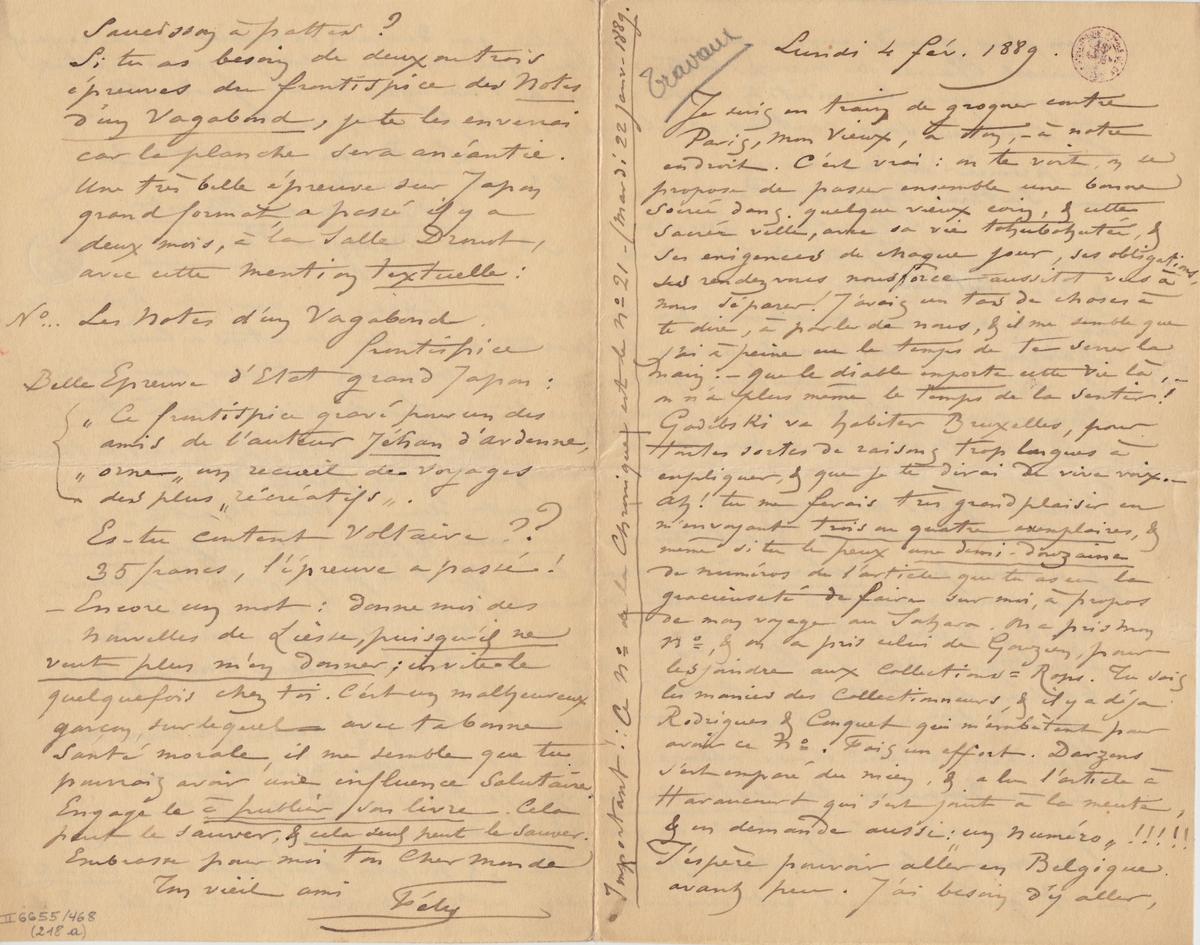 Travaux
Lundi 4 fév. 1889.
Je suis en train de grogner contre
Paris, mon vieux, à toi, – à notre
endroit. C'est vrai : on te voit, on se
propose de passer ensemble une bonne
soirée dans quelque vieux coin, & cette
sacrée ville, avec sa vie tohubohutée, &
ses exigences de chaque jour, ses obligations,
ses rendezvous nous force aussitôt vus à
nous séparer! J'avais un tas de choses à
te dire, à parler de nous, & il me semble que
j'ai à peine eu le temps de te serrer la
main. – que le diable emporte cette vie là, –
on n'a plus même le temps de la sentir!
Godebski va habiter Bruxelles, pour
toutes sortes de raisons trop longues à
expliquer, & que je te dirai de vive voix. –
Ah! tu me ferais très grand plaisir en
m'envoyant trois ou quatre exemplaires, &
même si tu le peux une demi-douzaine
de numéros de l'article que tu as eu la
gracieuseté de faire sur moi, à propos
de mon voyage au Sahara. On a pris mon
No, & on a pris celui de Gouzien, pour
les joindre aux Collections = Rops. Tu sais
les manies des Collectionneurs, & il y a déjà
Rodrigues & Conquet qui m'embêtent pour
avoir ce No. Fais un effort. Darzens
s'est emparé du mien, & a lu l'article à
Haraucourt qui s'est joint à la meute,
& en demande aussi „ un numéro „ !!!!!
J'espère pouvoir aller en Belgique
avant peu. J'ai besoin d'y aller,
Important! : Ce No de la Chronique est le no 21 – (mardi 22 janv. 1889.
Saucisson à pattes ?
Si tu as besoin de deux ou trois
épreuves du frontispice des Notes
d'un Vagabond, je te les enverrai
car la planche sera anéantie.
Une très belle épreuve sur Japon
grand format a passé il y a
deux mois, à la Salle Drouot,
avec cette mention textuelle :
No... Les Notes d'un Vagabond.
frontispice
Belle Epreuve d'Etat grand Japon :
„ Ce frontispice gravé pour un des
amis de l'auteur Jéhan d'Ardenne,
„ orne „ un recueil de voyages
des plus „ récréatifs „.
Es-tu content Voltaire ??
35 francs, l'épreuve a passé!
– Encore un mot : donne moi des
nouvelles de Liesse, puisqu'il ne
veut plus m'en donner ; invite le
quelquefois chez toi. C'est un malheureux
garçon, sur lequel avec ta bonne
santé morale, il me semble que tu
pourrais avoir une influence salutaire.
Engage le à publier son livre. Cela
peut le sauver, & cela seul peut le sauver.
Embrasse pour moi ton cher monde
Ton vieil ami
Fély
II 6655/468
(218 a)